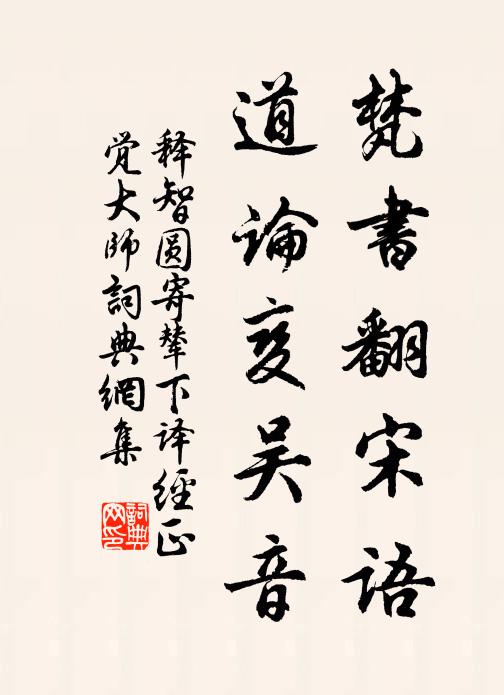 梵書翻宋語
道論变吴音
释智圆寄辇下译經正
觉大师詞典網集
詞典
网印